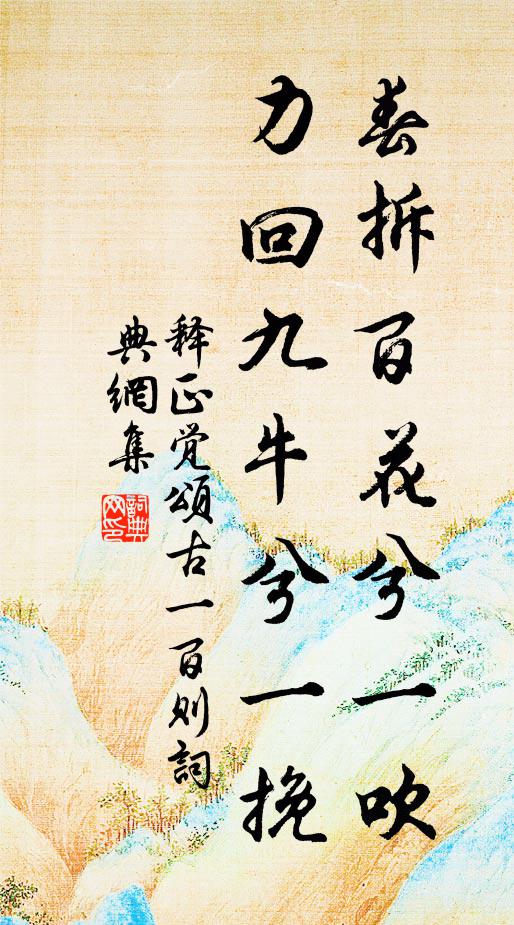 春拆百花兮一吹
力回九牛兮一挽
释正觉颂古一百则詞
典網集
詞典